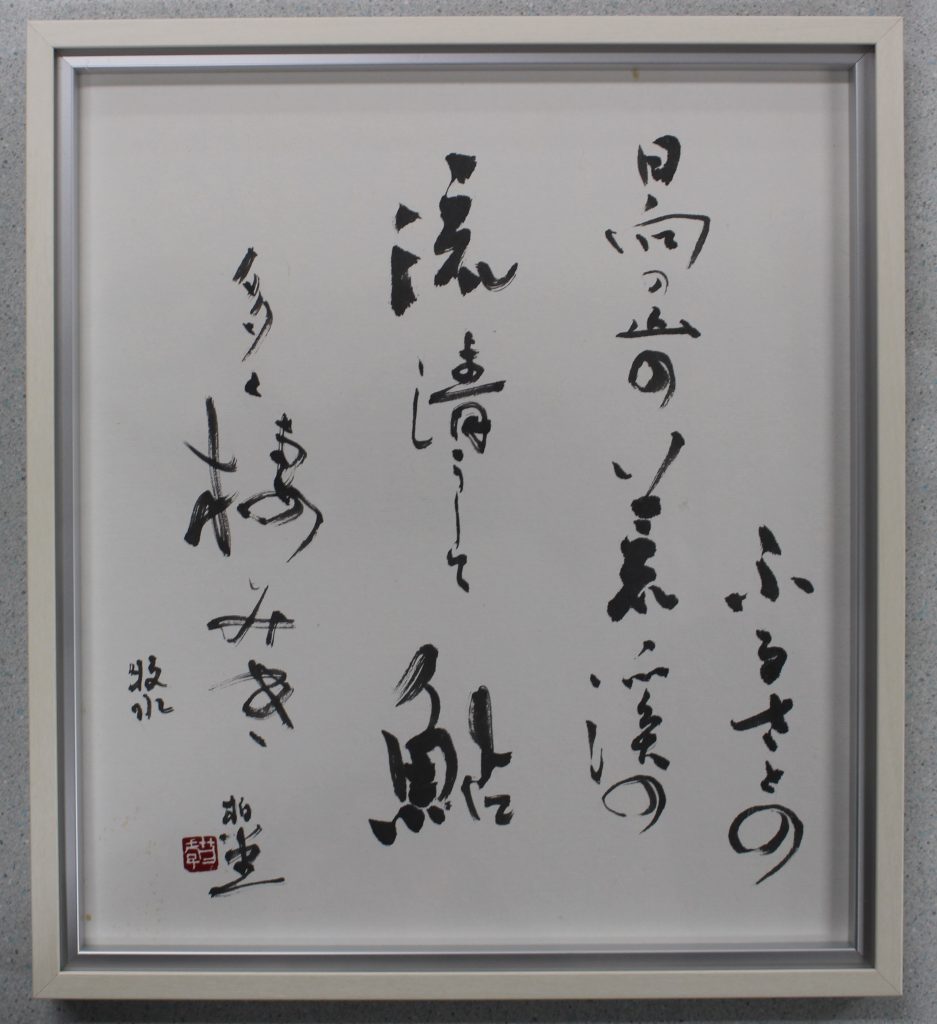 ふるさとの
日向の山の荒溪の
流清うして鮎
多く棲みき
牧水